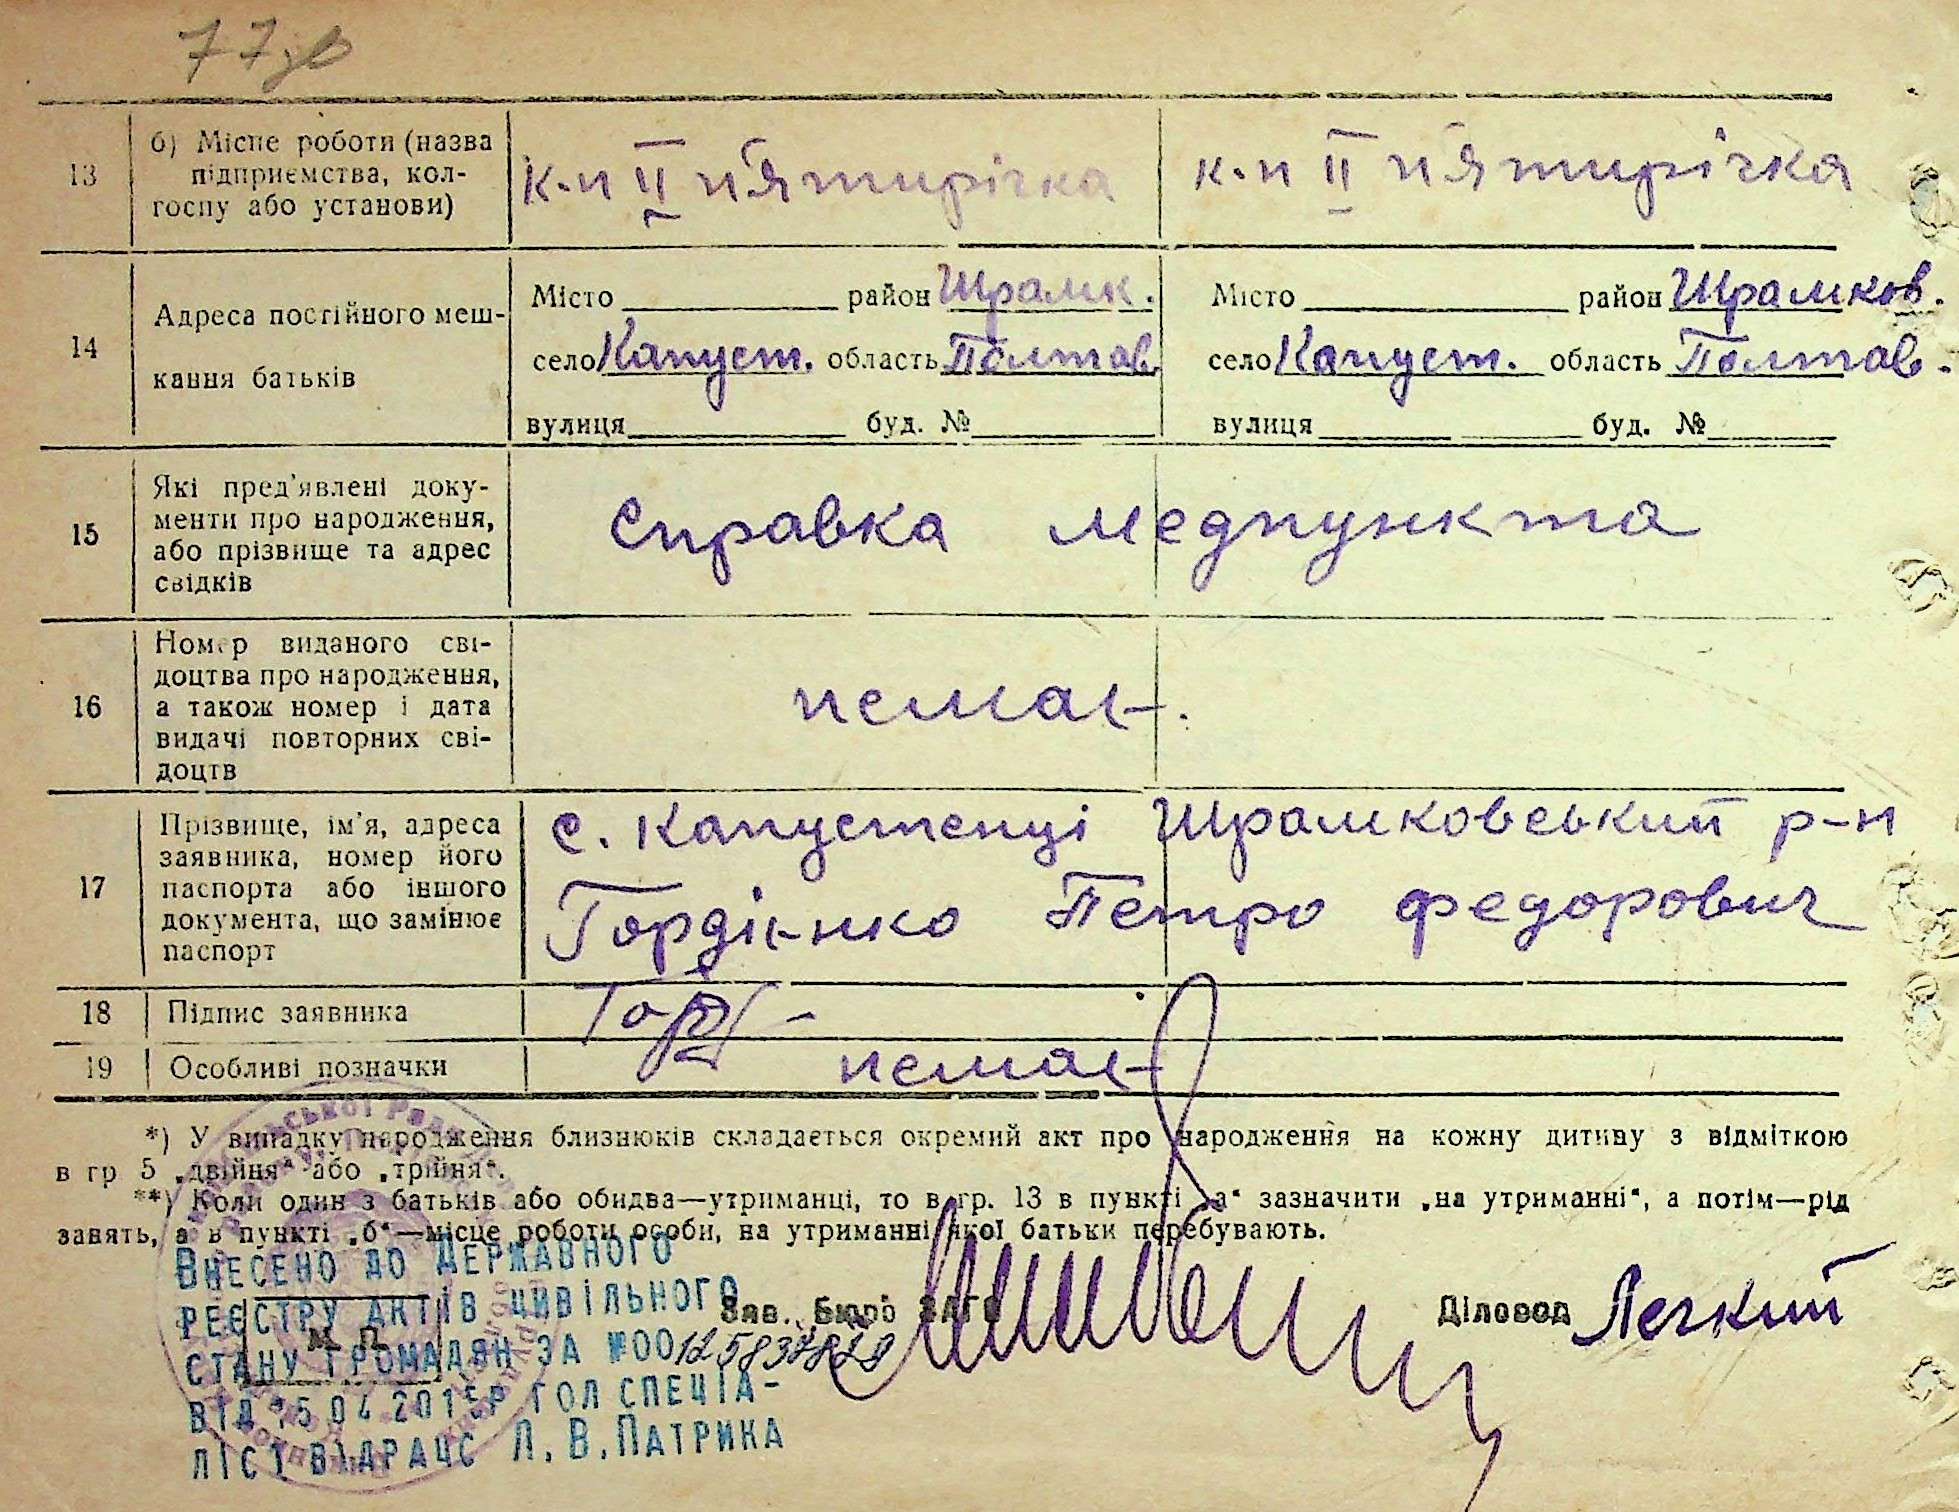 77
13 б) Місце роботи (назва підприємства, колгоспу або установи) к-п II п'ятирічка к-п II п'ятирічка
14 Адреса постійного мешкання батьків
Місто район Шрамк. Місто район Шрамков.
село Капуст. область Полтав. село Капуст. область Полтав.
вулиця буд. № вулиця буд. №
15 Які пред'явлені документи про народження, або прізвище та адрес свідків Справка медпункта
16 Номер виданого свідоцтва про народження, а також номер і дата видачі повторних свідоцтв немає.
17 Прізвище, ім'я, адреса заявника, номер його паспорта або іншого документа, що замінює паспорт
с. Капустенці Шрамковський р-н
Гордієнко Петро Федорович
18 Підпис заявника Горд
19 Особливі позначки немає
*) У випадку народження близнюків складається окремий акт про народження на кожну дитину з відміткою
в гр 5 „двійня“ або „трійня“.
**) Коли один з батьків або обидва—утриманці, то в гр. 13 в пункті „а“ зазначити „на утриманні“, а потім—рід
занять, а в пункті „б“—місце роботи особи, на утриманні якої батьки перебувають.
Внесено до Державного
реєстру актів цивільного
стану громадян за №0012583
від 15 04 2015р гол спеціа-
ліст відрацс Л. В. Патрика
М. П.
Зав. Бюро ЗАГС
Діловод Легкий